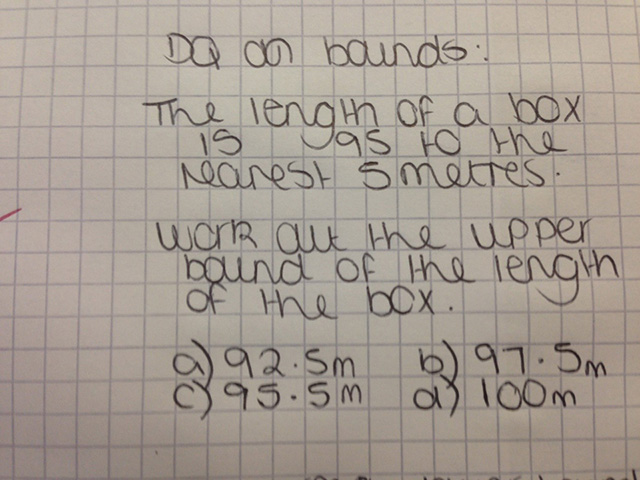 DQ on bounds:
The length of a box
is 95 to the
nearest 5 metres.
Work out the upper
bound of the length
of the box.
a) 92.5m b) 97.5m
c) 95.5m d) 100m